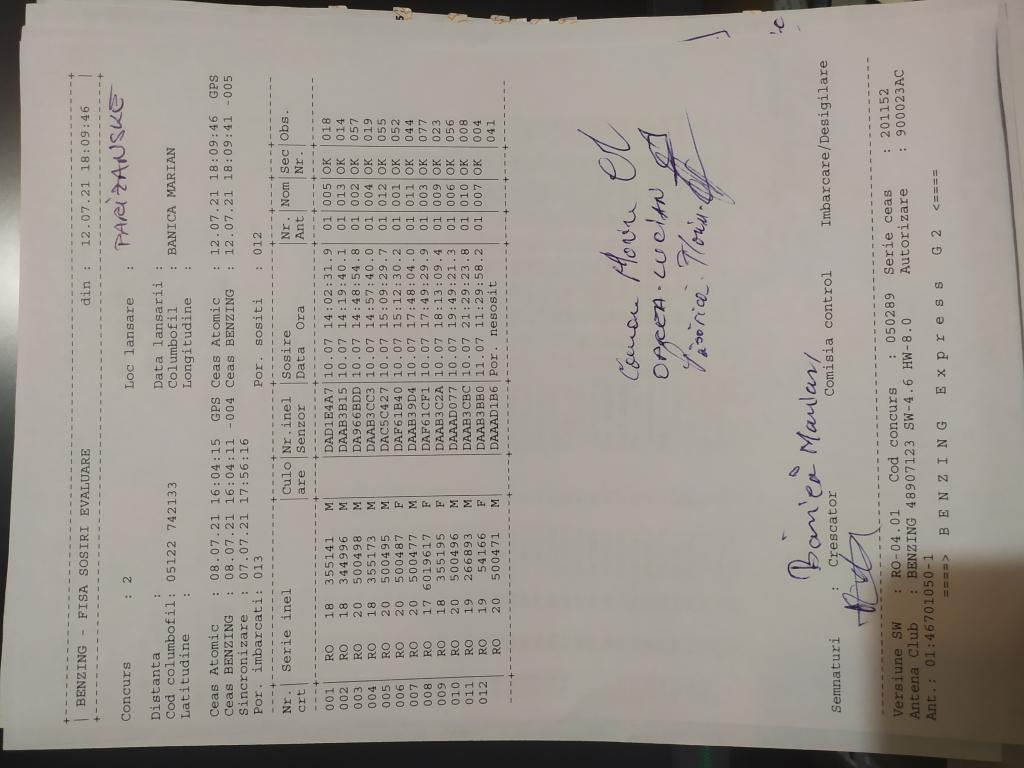 BENZING - FISA SOSIRI EVALUARE din : 12.07.21 18:09:46
Concurs : 2 Loc lansare : PARIZANSKE
Distanta : Data lansarii :
Cod columbofil: 05122 742133 Columbofil : BANICA MARIAN
Latitudine : Longitudine :
Ceas Atomic : 08.07.21 16:04:15 GPS Ceas Atomic : 12.07.21 18:09:46 GPS
Ceas BENZING : 08.07.21 16:04:11 -004 Ceas BENZING : 12.07.21 18:09:41 -005
Sincronizare : 07.07.21 17:56:16
Por. imbarcati: 013 Por. sositi : 012
Nr. Serie inel Culo Nr.inel Sosire Nr. Nom Sec Obs.
crt are Senzor Data Ora Ant Nr.
001 RO 18 355141 M DAD1E4A7 10.07 14:02:31.9 01 005 OK 018
002 RO 18 344996 M DAAB3B15 10.07 14:19:40.1 01 013 OK 014
003 RO 20 500498 M DA966BDD 10.07 14:48:54.8 01 002 OK 057
004 RO 18 355173 M DAAB3CC3 10.07 14:57:40.0 01 004 OK 019
005 RO 20 500495 M DAC5C427 10.07 15:09:29.7 01 012 OK 055
006 RO 20 500487 F DAF61B40 10.07 15:12:30.2 01 001 OK 052
007 RO 20 500477 M DAAB39D4 10.07 17:48:04.0 01 011 OK 044
008 RO 17 6019617 F DAF61CF1 10.07 17:49:29.9 01 003 OK 077
009 RO 18 355195 F DAAB3C2A 10.07 18:13:09.4 01 009 OK 023
010 RO 20 500496 M DAAAD077 10.07 19:49:21.3 01 006 OK 056
011 RO 19 266893 M DAAB3CBC 10.07 21:29:23.8 01 010 OK 008
012 RO 19 54166 F DAAB3BB0 11.07 11:29:58.2 01 007 OK 004
RO 20 500471 M DAAAD1B6 Por. nesosit 041
LUCIAN
Bănică Marian
Semnaturi : Crescator Comisia control Imbarcare/Desigilare
Versiune SW : RO-04.01 Cod concurs : 050289 Serie ceas : 201152
Antena Club : BENZING 48907123 SW-4.6 HW-8.0 Autorizare : 900023AC
Ant.: 01:46701050-1
====> B E N Z I N G E x p r e s s G 2 <====